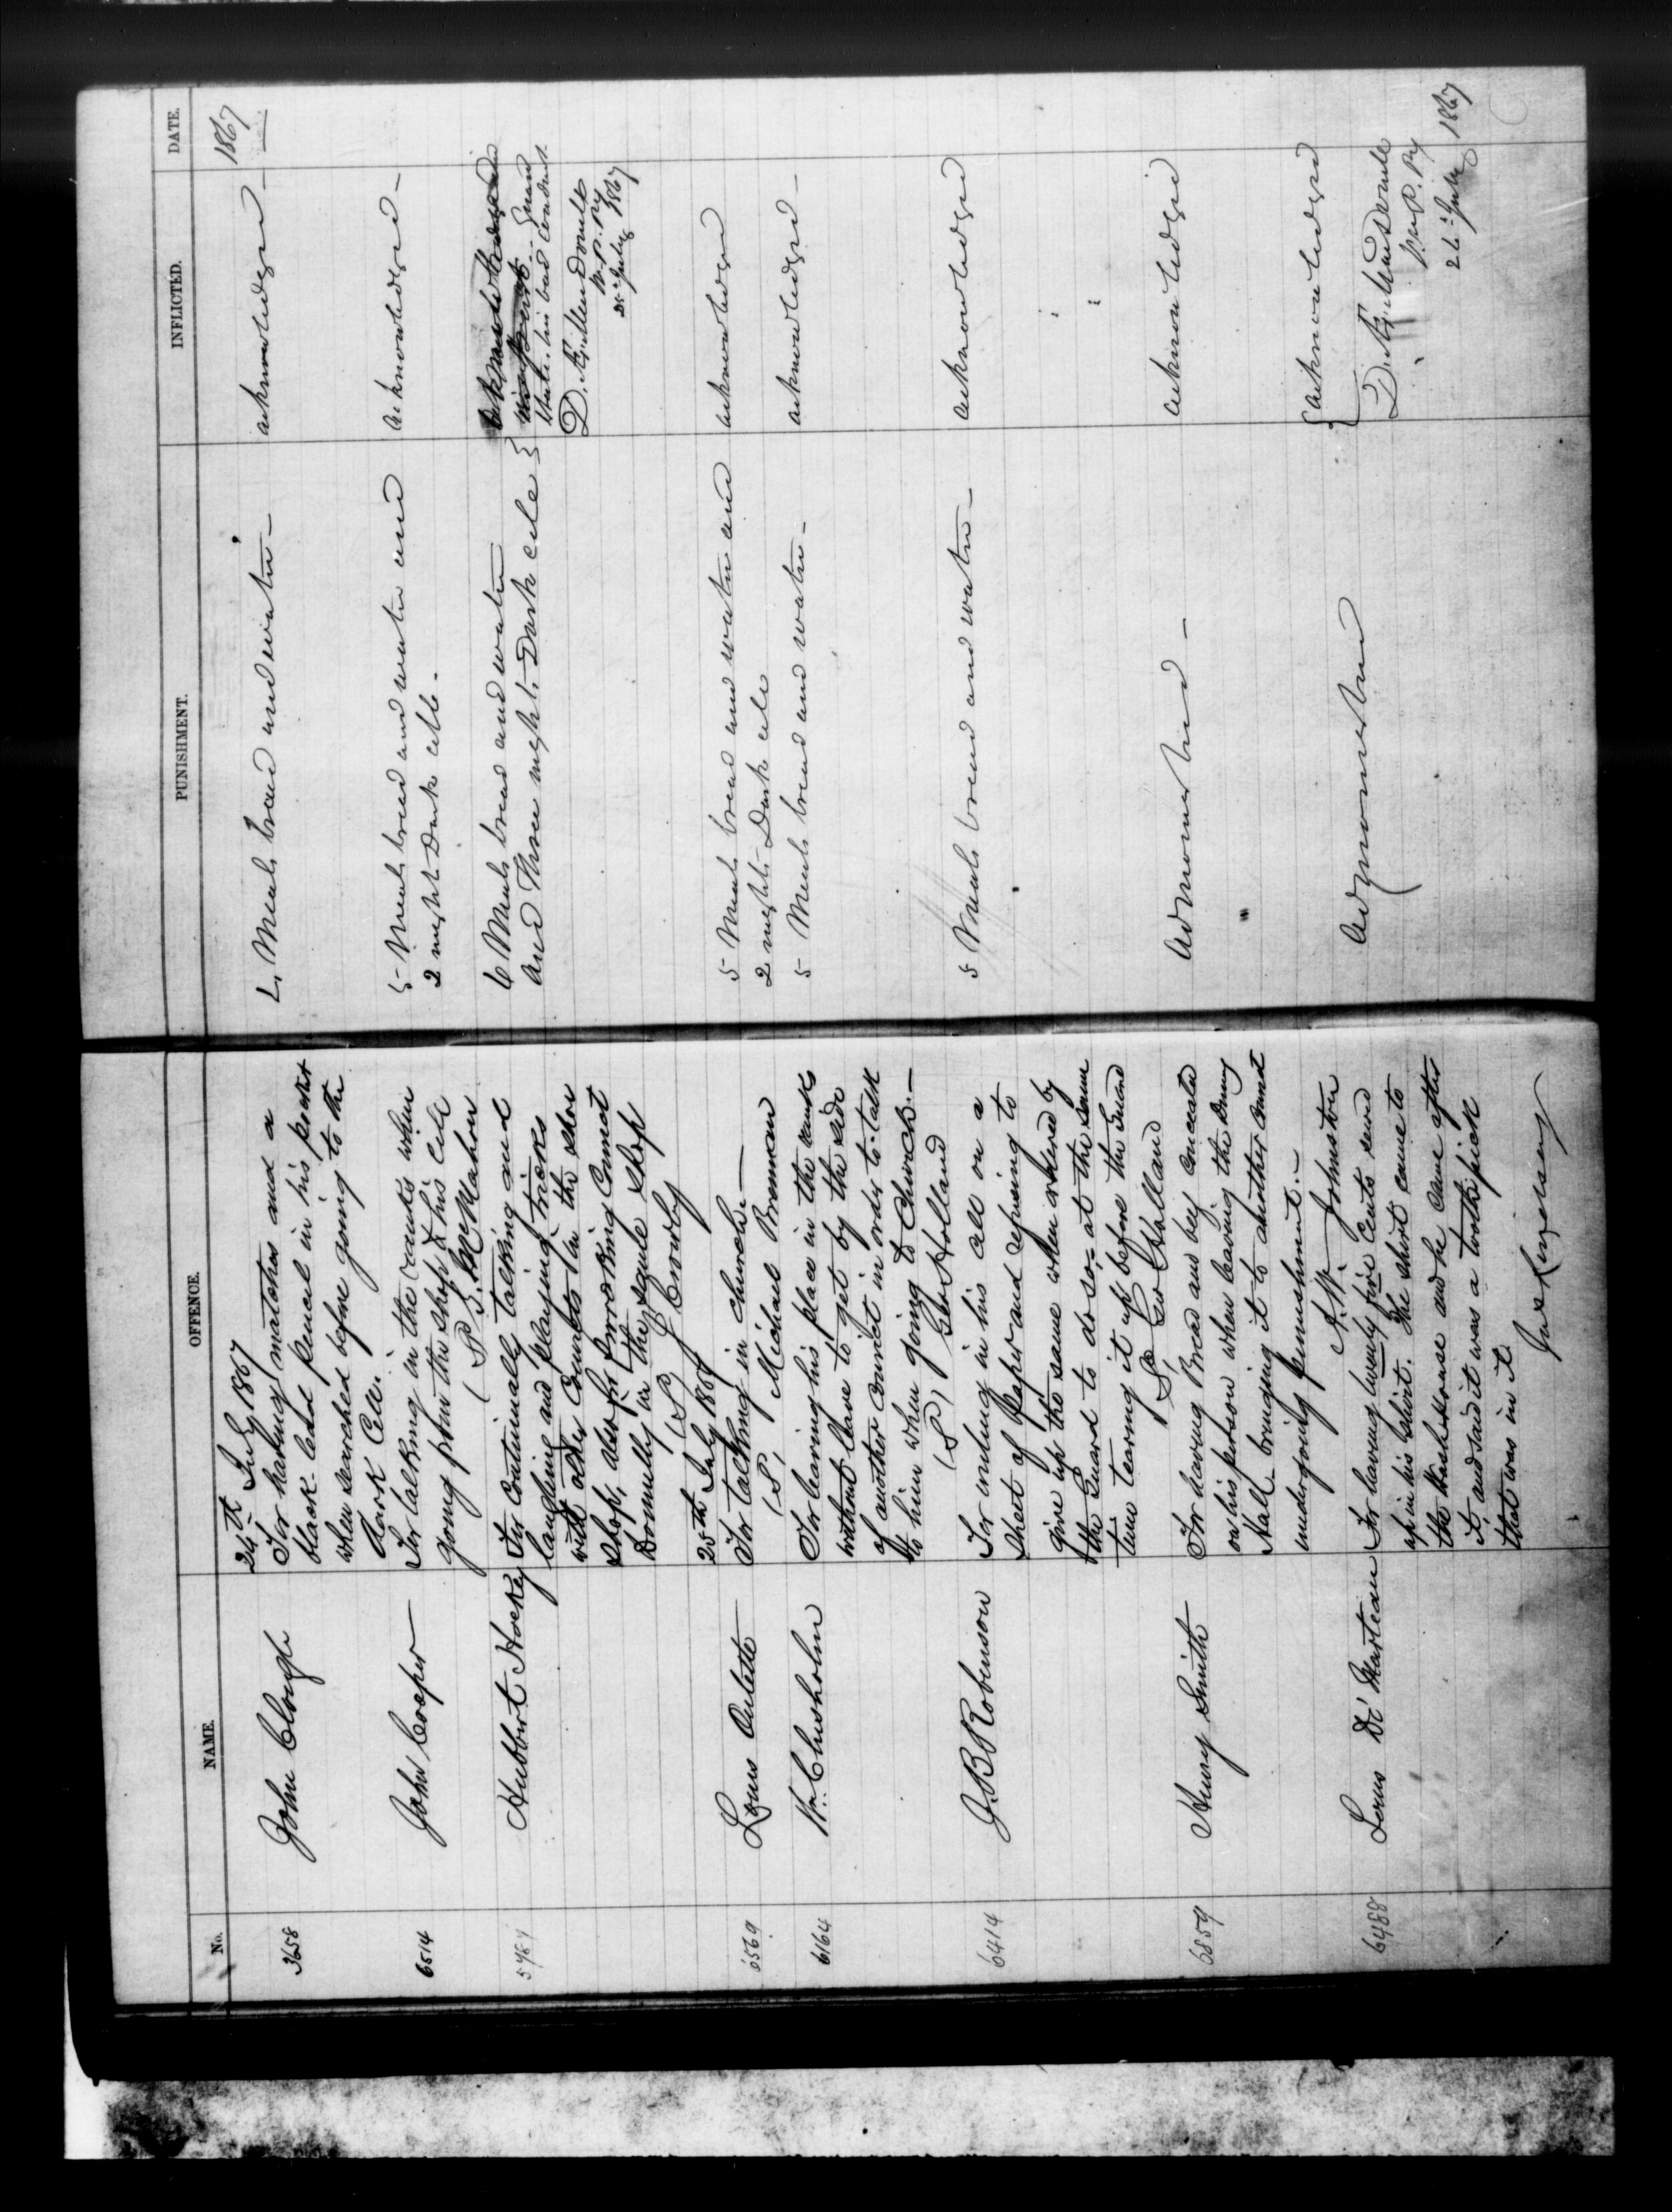 No. NAME. OFFENCE. PUNISHMENT. INFLICTED. DATE.
24th July 1867
1867
3658 John Clough
For having matches and a
black lead pencil in his pocket
when searched before going to the
dark Cell.
Meals bread and water -
acknowledged -
6514 John Cooper
For talking in the ranks when
going from the shop to his cell
(S) McMahon
5 Meals bread and water and
2 nights Dark cell -
acknowledged -
Hubbert Hockey
For Continually talking and
laughing and playing tricks
with other Convicts in the shoe
shop, also for provoking Convict
Donnelly in the same Shop
(S) J Crowley
6 Meals bread and water
and Three nights Dark cell
Guard
states his bad conduct
25 July 1867
25th July 1867
6569 Louis Oulette
For talking in church -
(S) Michael Brennan
5 Meals bread and water and
2 nights Dark cell
acknowledged
6164 Wm Chisholm
For leaving his place in the ranks
without leave to get by the side
of another convict in order to talk
to him when going to Church. -
(S) Geo Holland
5 Meals bread and water -
acknowledged -
6414 J. B. Robinson
For writing in his cell on a
Sheet of Paper and refusing to
give up the same when ordered by
the Guard to do so, at the same
time tearing it up before the Guard
(S) Geo Holland
5 Meals bread and water -
acknowledged
6859 Henry Smith
For having Bread and beef concealed
on his person when leaving the Dining
Hall bringing it to another convict
undergoing punishment. -
Johnston
Admonished -
acknowledged
6488 Louis De Marteau
For having twenty five Cents sewed
up in his shirt. The shirt came to
the Wash House and he came after
it, and said it was a tooth pick
that was in it.
Admonished
acknowledged
26 July 1867